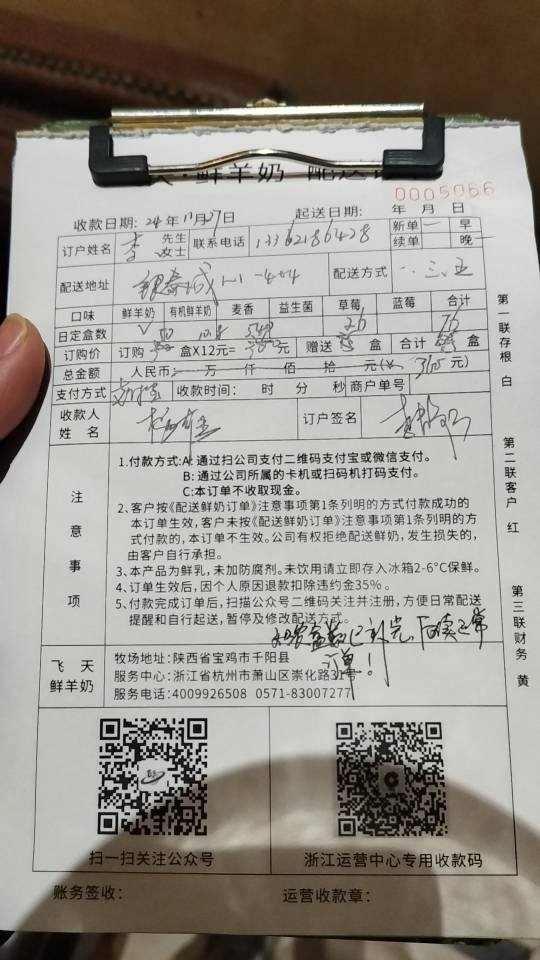 鲜羊奶 配送
0005066
收款日期: 24年11月27日 起送日期: 年 月 日
订户姓名 李 先生 女士 联系电话 13362186428 新单 续单 早 晚
配送地址 1-1-404 配送方式 一.三.五
口味 鲜羊奶 有机鲜羊奶 麦香 益生菌 草莓 蓝莓 合计
日定盒数 26 76
订购价 订购 盒X12元= 元 赠送 盒 合计 盒
总金额 人民币: 万 仟 佰 拾 元(¥ 元)
支付方式 收款时间: 时 分 秒 商户单号
收款人姓名 订户签名
注意事项
1.付款方式:A: 通过扫公司支付二维码支付宝或微信支付。
B: 通过公司所属的卡机或扫码机打码支付。
C:本订单不收取现金。
2、客户按《配送鲜奶订单》注意事项第1条列明的方式付款成功的
本订单生效，客户未按《配送鲜奶订单》注意事项第1条列明的方
式付款的，本订单不生效。公司有权拒绝配送鲜奶，发生损失的，
由客户自行承担。
3、本产品为鲜乳，未加防腐剂。未饮用请立即存入冰箱2-6°C保鲜。
4、订单生效后，因个人原因退款扣除违约金35%。
5、付款完成订单后，扫描公众号二维码关注并注册，方便日常配送
提醒和自行起送，暂停及修改配送方式。
盒数已补完，后续正常
订单！
飞天
鲜羊奶
牧场地址: 陕西省宝鸡市千阳县
服务中心: 浙江省杭州市萧山区崇化路31号
服务电话: 4009926508 0571-83007277
扫一扫关注公众号
浙江运营中心专用收款码
账务签收: 运营收款章:
第一联存根 白
第二联客户 红
第三联财务 黄